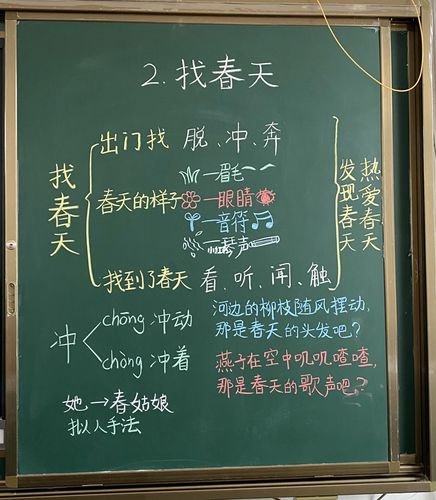 2.找春天
找春天
出门找 脱、冲、奔
春天的样子
—眉毛
—眼睛
—音符
—琴声
找到了春天 看、听、闻、触
发现春天
热爱春天
冲
chōng 冲动
chòng 冲着
河边的柳枝随风摆动,
那是春天的头发吧?
燕子在空中叽叽喳喳,
那是春天的歌声吧?
她→春姑娘
拟人手法